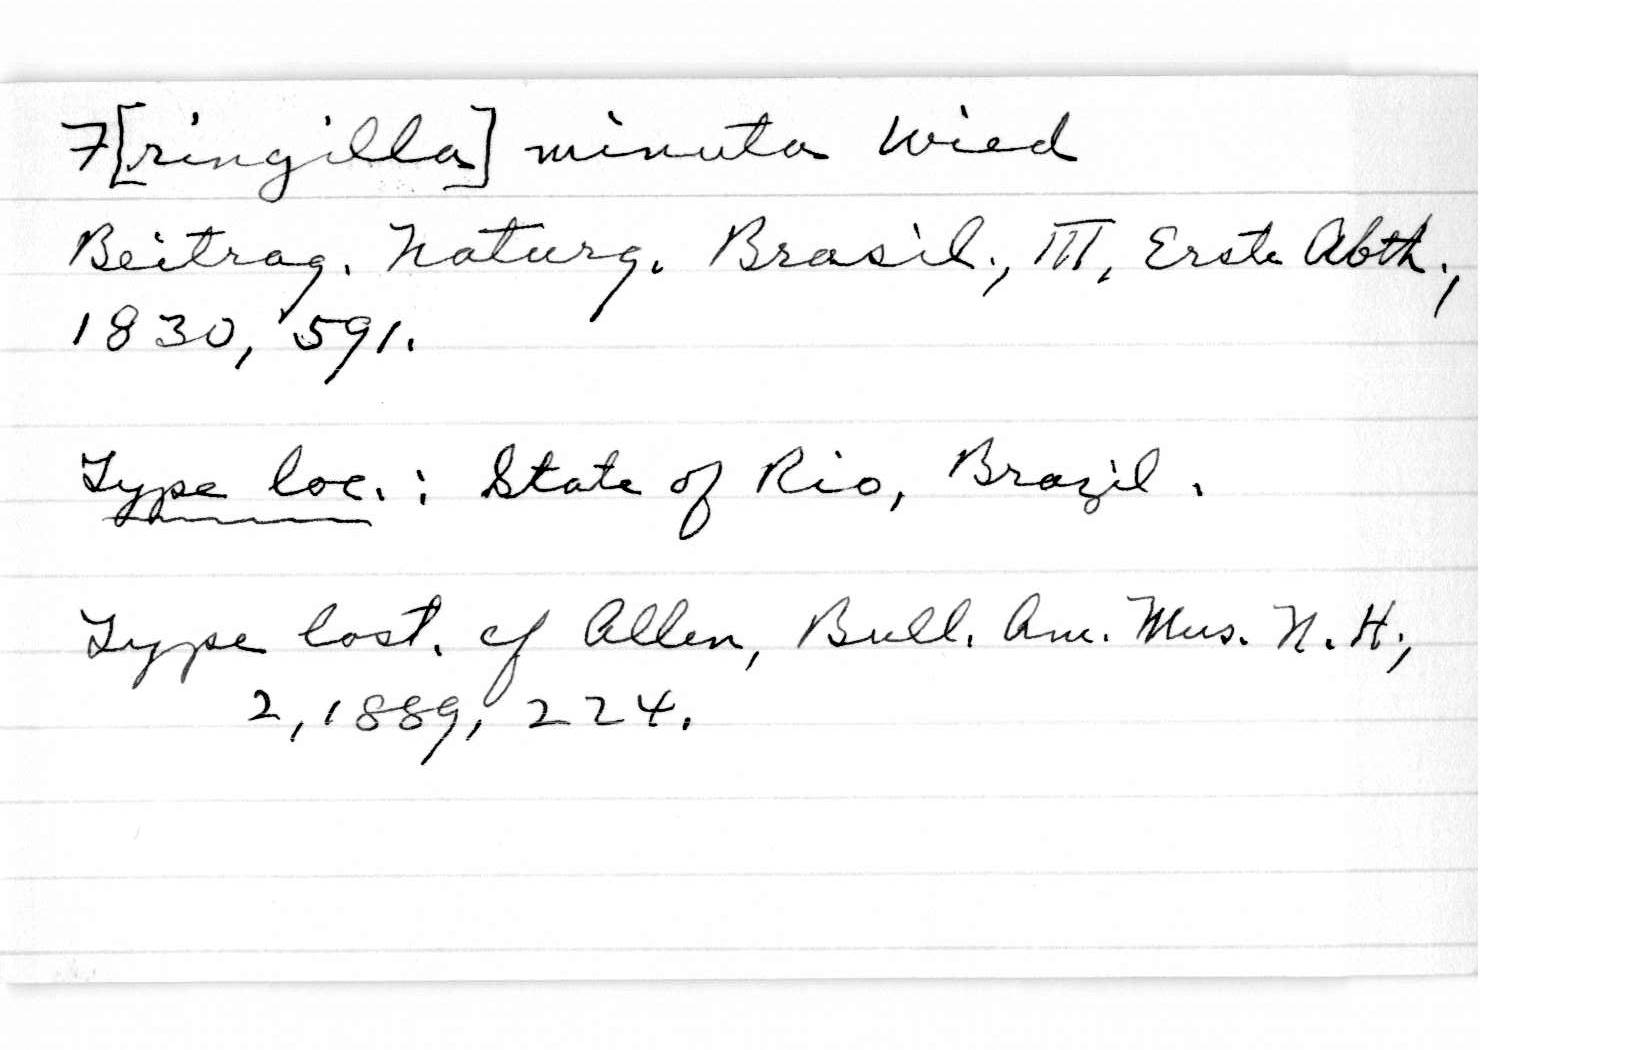 F[ringilla] minuta Wied
Beitrag. Naturg. Brasil., III, Erste Abth.,
1830, 591.
Type loc.: State of Rio, Brazil.
Type lost. cf Allen, Bull. Am. Mus. N.H.,
2, 1889, 224.